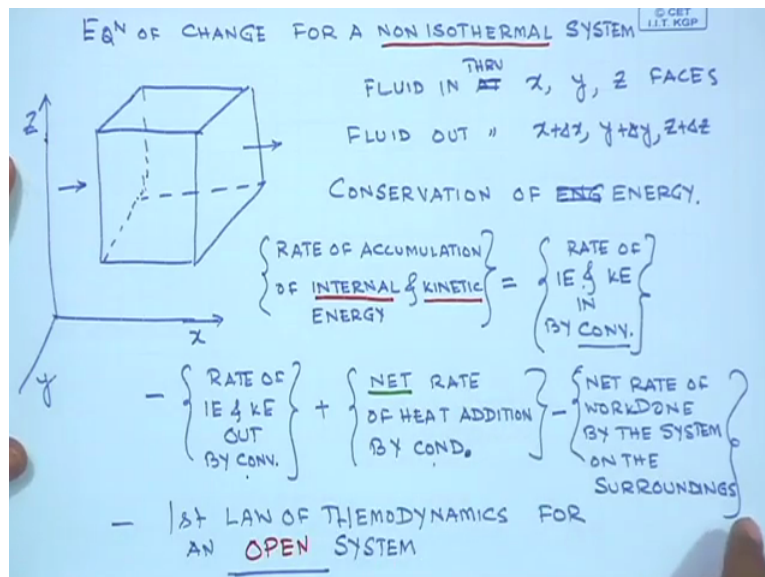 © CET
I.I.T. KGP
EQN OF CHANGE FOR A NON ISOTHERMAL SYSTEM
THRU
FLUID IN AT x, y, z FACES
FLUID OUT " x+Δx, y+Δy, z+Δz
CONSERVATION OF ENG ENERGY.
{RATE OF ACCUMULATION
OF INTERNAL & KINETIC
ENERGY} =
{RATE OF
IE & KE
IN
BY CONV.}
- {RATE OF
IE & KE
OUT
BY CONV.}
+ {NET RATE
OF HEAT ADDITION
BY COND.}
- {NET RATE OF
WORKDONE
BY THE SYSTEM
ON THE
SURROUNDINGS}
- 1st LAW OF THEMODYNAMICS FOR
AN OPEN SYSTEM
z
x
y